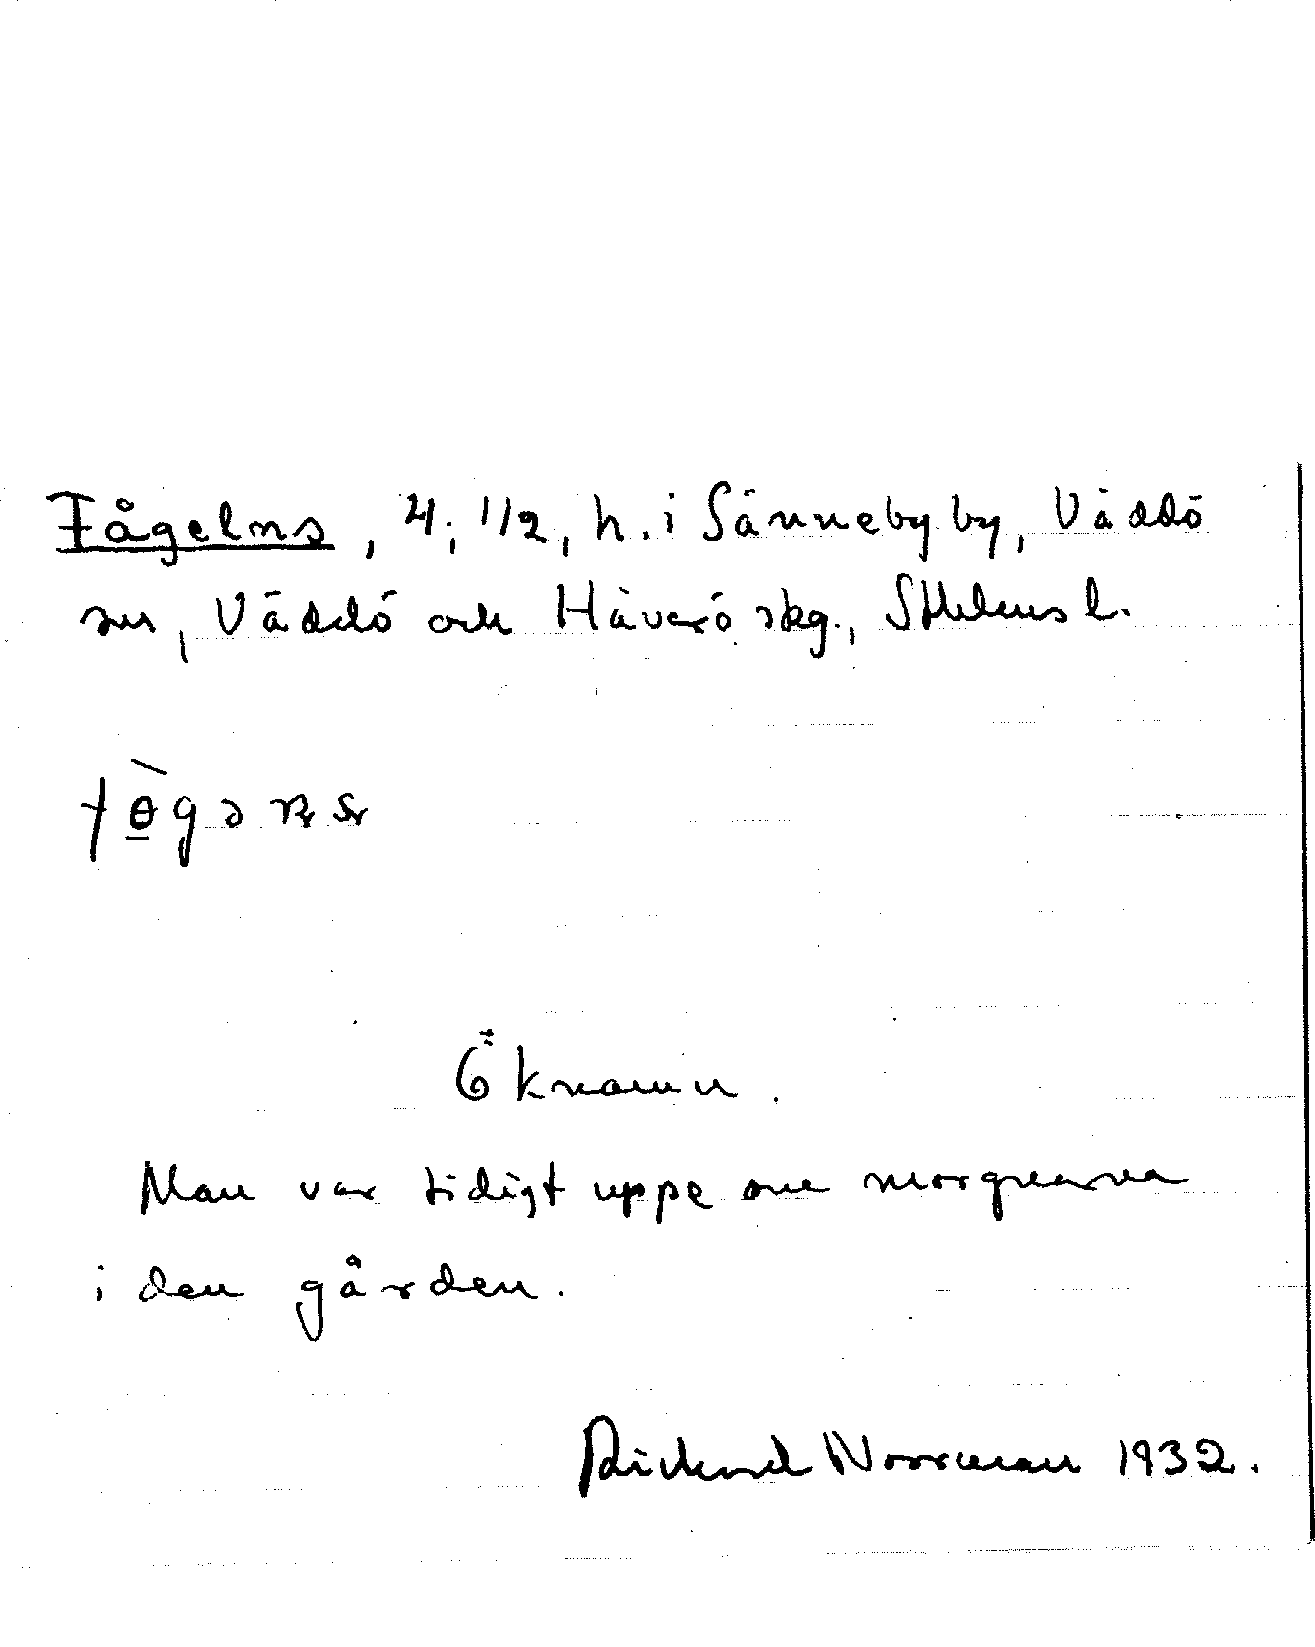 Fågelns, 4; 1/2, h. i Sänneby by, Väddö
sn, Väddö och Häverö skg., Sthlms l.
fè̱gəns
Öknamn.
Man var tidigt uppe om morgnarna
i den gården.
Rickard Norrman 1932.